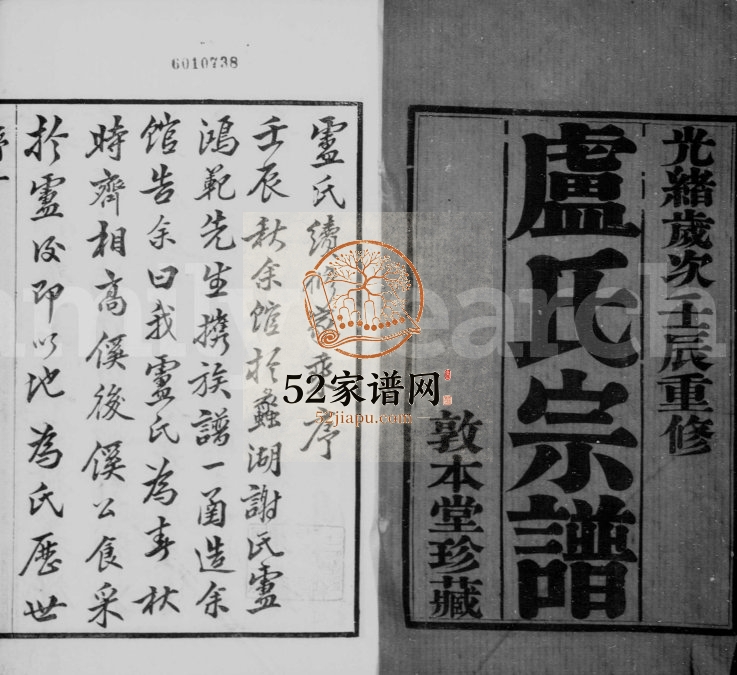 6010738
光緒歲次壬辰重修
盧氏宗譜
敦本堂珍藏
盧氏續修宗乘序
壬辰秋余館於蠡湖謝氏盧
鴻範先生携族譜一函造余
館告余曰我盧氏為春秋
時齊相高傒後傒公食采
於盧後即以地為氏歷世
52家谱网
52jiapu.com
familysearch